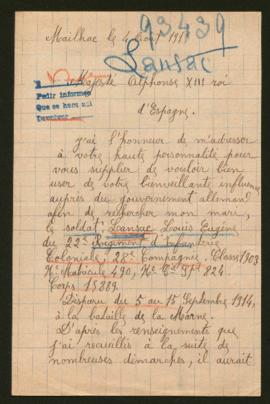 93439
Lansac
Mailhac le 4 Août 191
Majesté Alphonse XIII roi
Pedir informes
Que se hace
d'Espagne.
j'ai l'honneur de m'adresser
à votre haute personnalité pour
vous supplier de vouloir bien
user de votre bienveillante influence
auprès du gouvernement allemand
afin de rechercher mon mari,
le soldat, Lansac Louis Eugène
du 22e Régiment d'Infanterie
Coloniale, 28e Compagnie. Classe 1903
No Matricule 490,
Corps 15889.
Disparu du 5 au 15 Septembre 1914,
à la bataille de la Marne.
D'après les renseignements que
j'ai recueillis à la suite de
nombreuses démarches, il aurait